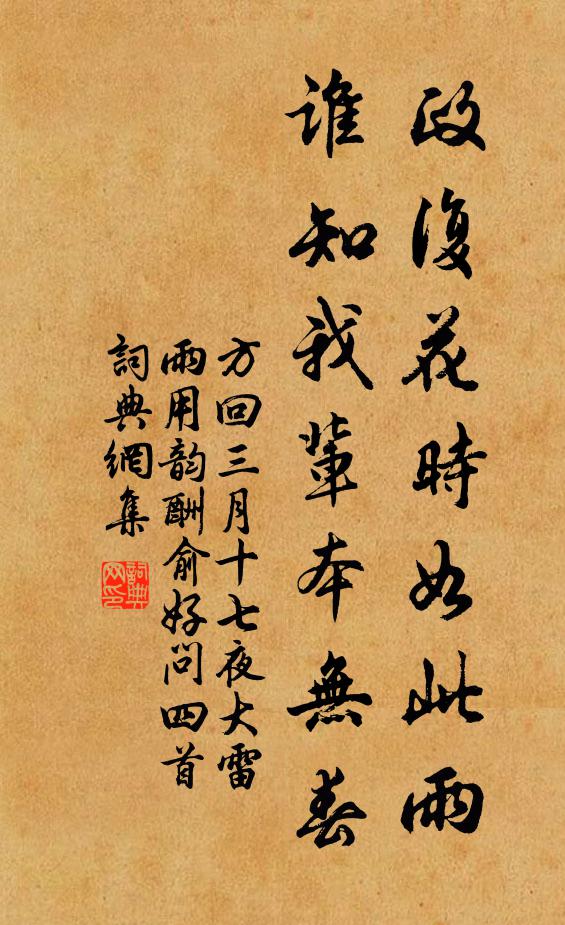 政復花時如此雨
誰知我輩本無春
方回三月十七夜大雷
雨用韵酬俞好問四首
詞典網集
詞典网印